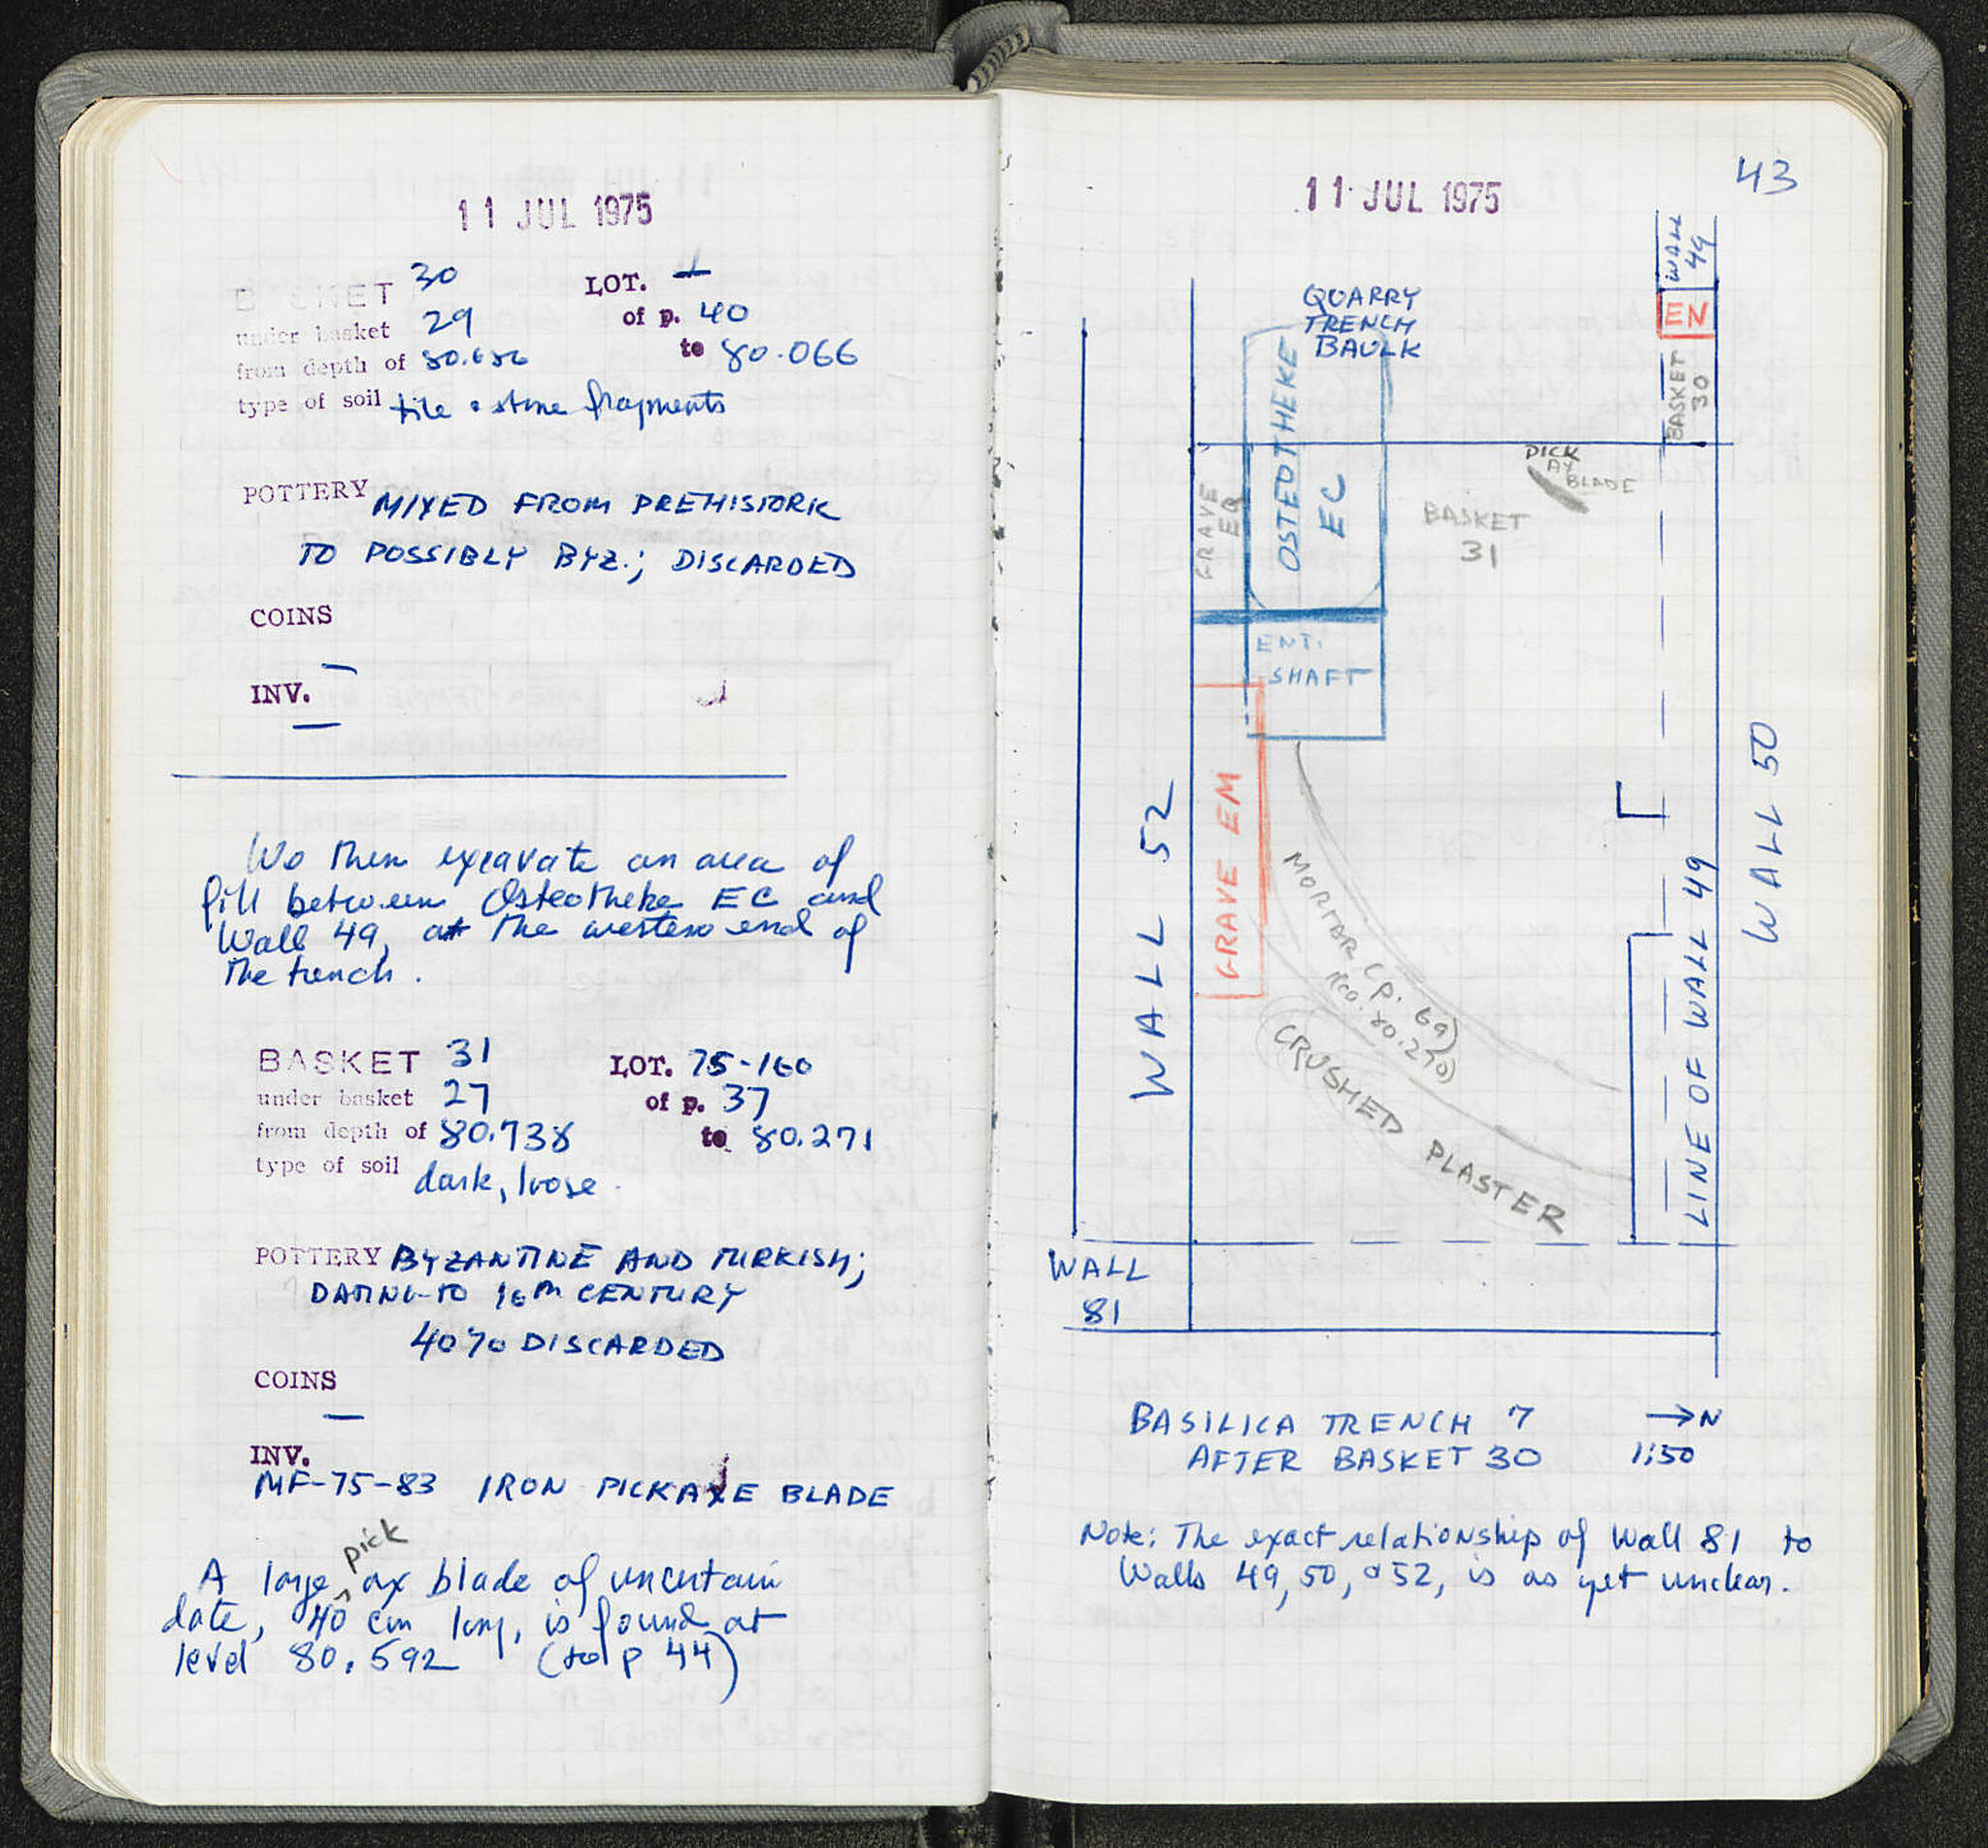 11 JUL 1975
BASKET 30 LOT. —
under basket 29 of p. 40
from depth of 80.686 to 80.066
type of soil tile & stone fragments
POTTERY MIXED FROM PREHISTORIC
TO POSSIBLY BYZ.; DISCARDED
COINS
—
INV.
—
We then excavate an area of
fill between Osteotheke EC and
Wall 49, at the western end of
the trench.
BASKET 31 LOT. 75-160
under basket 27 of p. 37
from depth of 80.738 to 80.271
type of soil dark, loose.
POTTERY BYZANTINE AND TURKISH;
DATING TO 16TH CENTURY
40% DISCARDED
COINS
—
INV.
MF-75-83 IRON PICKAXE BLADE
pick
A large ax blade of uncertain
date, 40 cm long, is found at
level 80.592 (to p 44)
43
11 JUL 1975
WALL
49
EN
BASKET
30
QUARRY
TRENCH
BAULK
OSTEOTHEKE
EC
GRAVE
EQ
PICK
AX
BLADE
BASKET
31
ENT.
SHAFT
GRAVE EM
WALL 52
WALL 50
LINE OF WALL 49
MORTAR (p. 69)
80.270)
CRUSHED PLASTER
WALL
81
BASILICA TRENCH 7 →N
AFTER BASKET 30 1:50
Note: The exact relationship of Wall 81 to
Walls 49, 50, & 52, is as yet unclear.